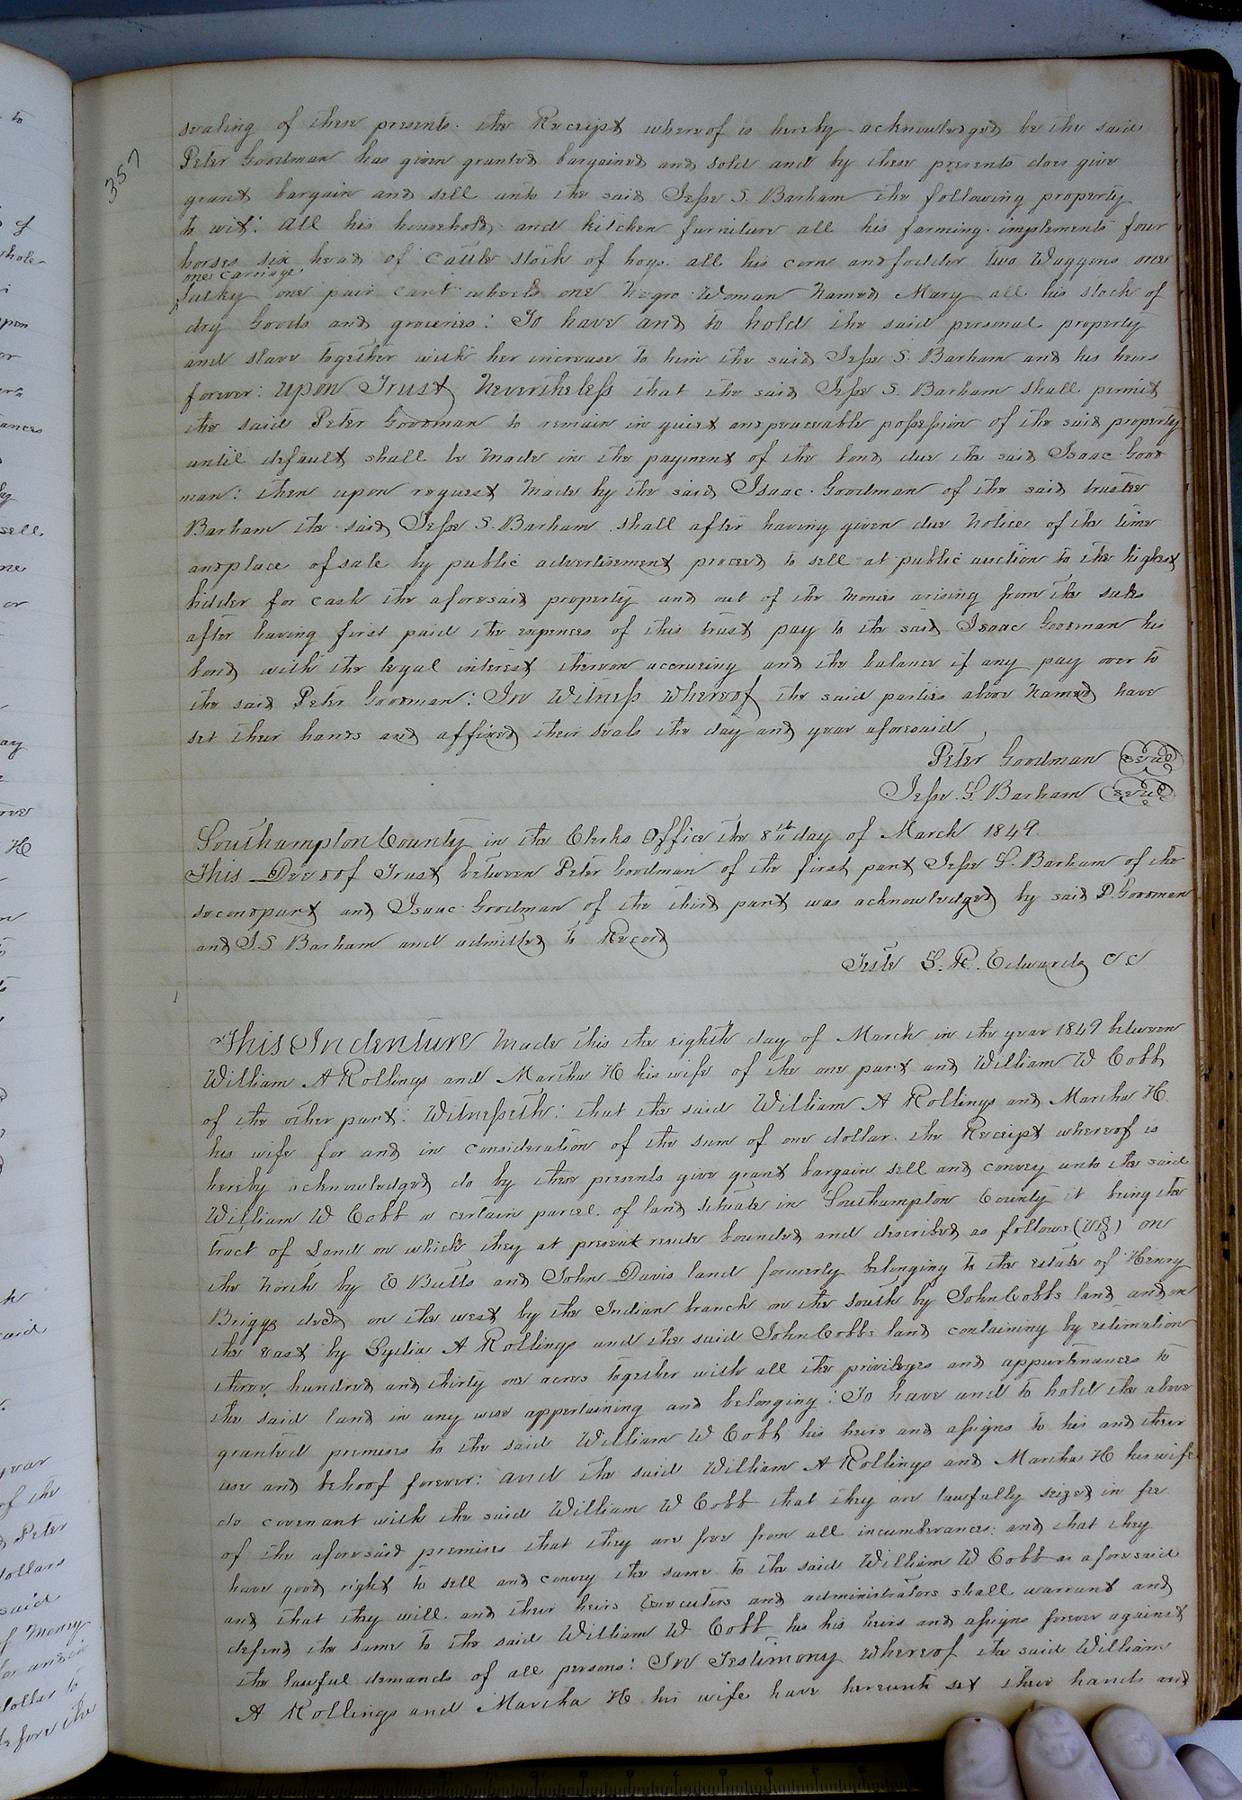 357
sealing of these presents. the Receipt whereof is hereby acknowledged he the said
Peter Goodman has given granted bargained and sold and by these presents does give
grant bargain and sell unto the said Jesse S. Barham the following property
to wit: All his household and kitchen furniture all his farming implements four
horses six head of cattle stock of hogs all his corn and fodder two Waggons one
one Carriage
sulky one pair cart wheels one Negro Woman Named Mary all his stock of
dry Goods and groceries: To have and to hold the said personal property
and slave together with her increase to him the said Jesse S. Barham and his heirs
forever: upon Trust Nevertheless that the said Jesse S. Barham shall permit
the said Peter Goodman to remain in quiet and peaceable possession of the said property
until default shall be made in the payment of the bond due the said Isaac Good
man: then upon request made by the said Isaac Goodman of the said trustee
Barham the said Jesse S. Barham shall after having given due Notice of the time
and place of sale by public advertisement proceed to sell at public auction to the highest
bidder for cash the aforesaid property and out of the monies arising from the sale
after having first paid the expences of this trust pay to the said Isaac Goodman his
bond with the legal interest thereon accrueing and the balance if any pay over to
the said Peter Goodman: In Witness whereof the said parties above Named have
set their hands and affixed their seals the day and year aforesaid
Peter Goodman seal
Jesse S. Barham seal
Southampton County in the Clerks Office the 8th day of March 1849
This Deed of Trust between Peter Goodman of the first part Jesse S. Barham of the
second part and Isaac Goodman of the third part was acknowledged by said P. Goodman
and J. S Barham and admitted to Record
Teste L. R. Edwards CC
This Indenture made this the eighth day of March in the year 1849 between
William A Rollings and Martha H his wife of the one part and William W Cobb
of the other part: Witnesseth: that the said William A Rollings and Martha H.
his wife for and in consideration of the sum of one dollar the Receipt whereof is
hereby acknowledged do by these presents give grant bargain sell and convey unto the said
William W Cobb a certain parcel of land situate in Southampton County it being the
tract of Land on which they at present reside bounded and described as follows (viz) on
the North by E Butts and John Davis land formerly belonging to the estate of Henry
Briggs decd on the west by the Indian branch on the South by John Cobbs land and on
the east by Lydia A Rollings and the said John Cobbs land containing by estimation
three hundred and thirty one acres together with all the privileges and appurtenances to
the said land in any wise appertaining and belonging: To have and to hold the above
granted premises to the said William W Cobb his heirs and assigns to his and their
use and behoof forever: and the said William A Rollings and Martha H his wife
do covenant with the said William W Cobb that they are lawfully seized in fee
of the aforesaid premises that they are free from all incumberances: and that they
have good right to sell and convey the same to the said William W Cobb as aforesaid
and that they will and their heirs Executors and administrators shall warrant and
defend the same to the said William W Cobb his his heirs and assigns forever against
the lawful demands of all persons: In Testimony whereof the said William
A Rollings and Martha H his wife have hereunto set their hands and